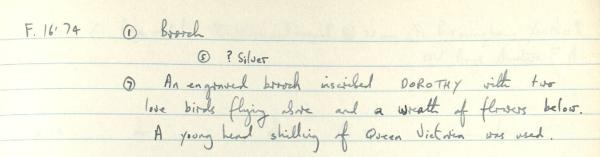 F. 16'74 ① Brooch
⑤ ? Silver
⑦ An engraved brooch inscribed DOROTHY with two
love birds flying above and a wreath of flowers below.
A young head shilling of Queen Victoria was used.